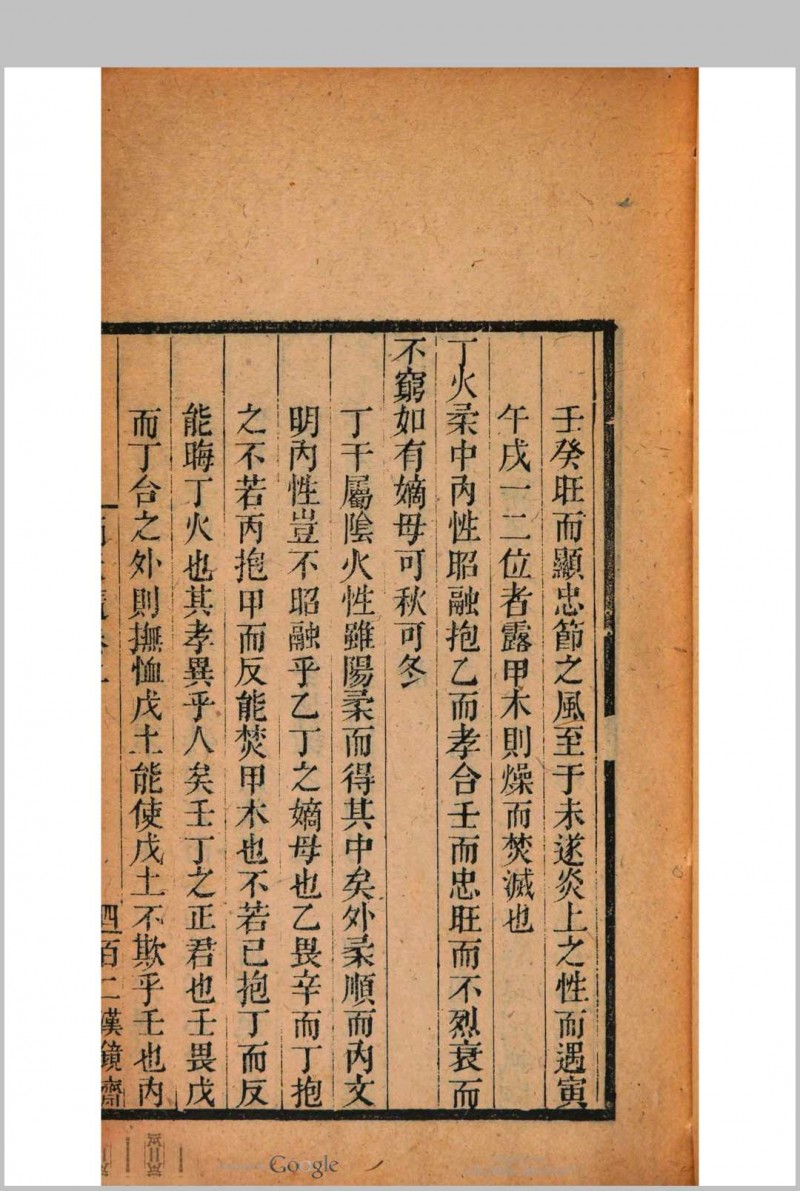 壬癸旺而顯忠節之風至于未遂炎上之性而遇寅
午戌一二位者露甲木則燥而焚滅也
丁火柔中內性昭融抱乙而孝合壬而忠旺而不烈衰而
不窮如有嫡母可秋可冬
丁干屬陰火性雖陽柔而得其中矣外柔順而內文
明內性豈不昭融乎乙丁之嫡母也乙畏辛而丁抱
之不若丙抱甲而反能焚甲木也不若已抱丁而反
能晦丁火也其孝異乎人矣壬丁之正君也壬畏戊
而丁合之外則撫恤戊土能使戊土不欺乎壬也內
四百二漢鏡齋
Google